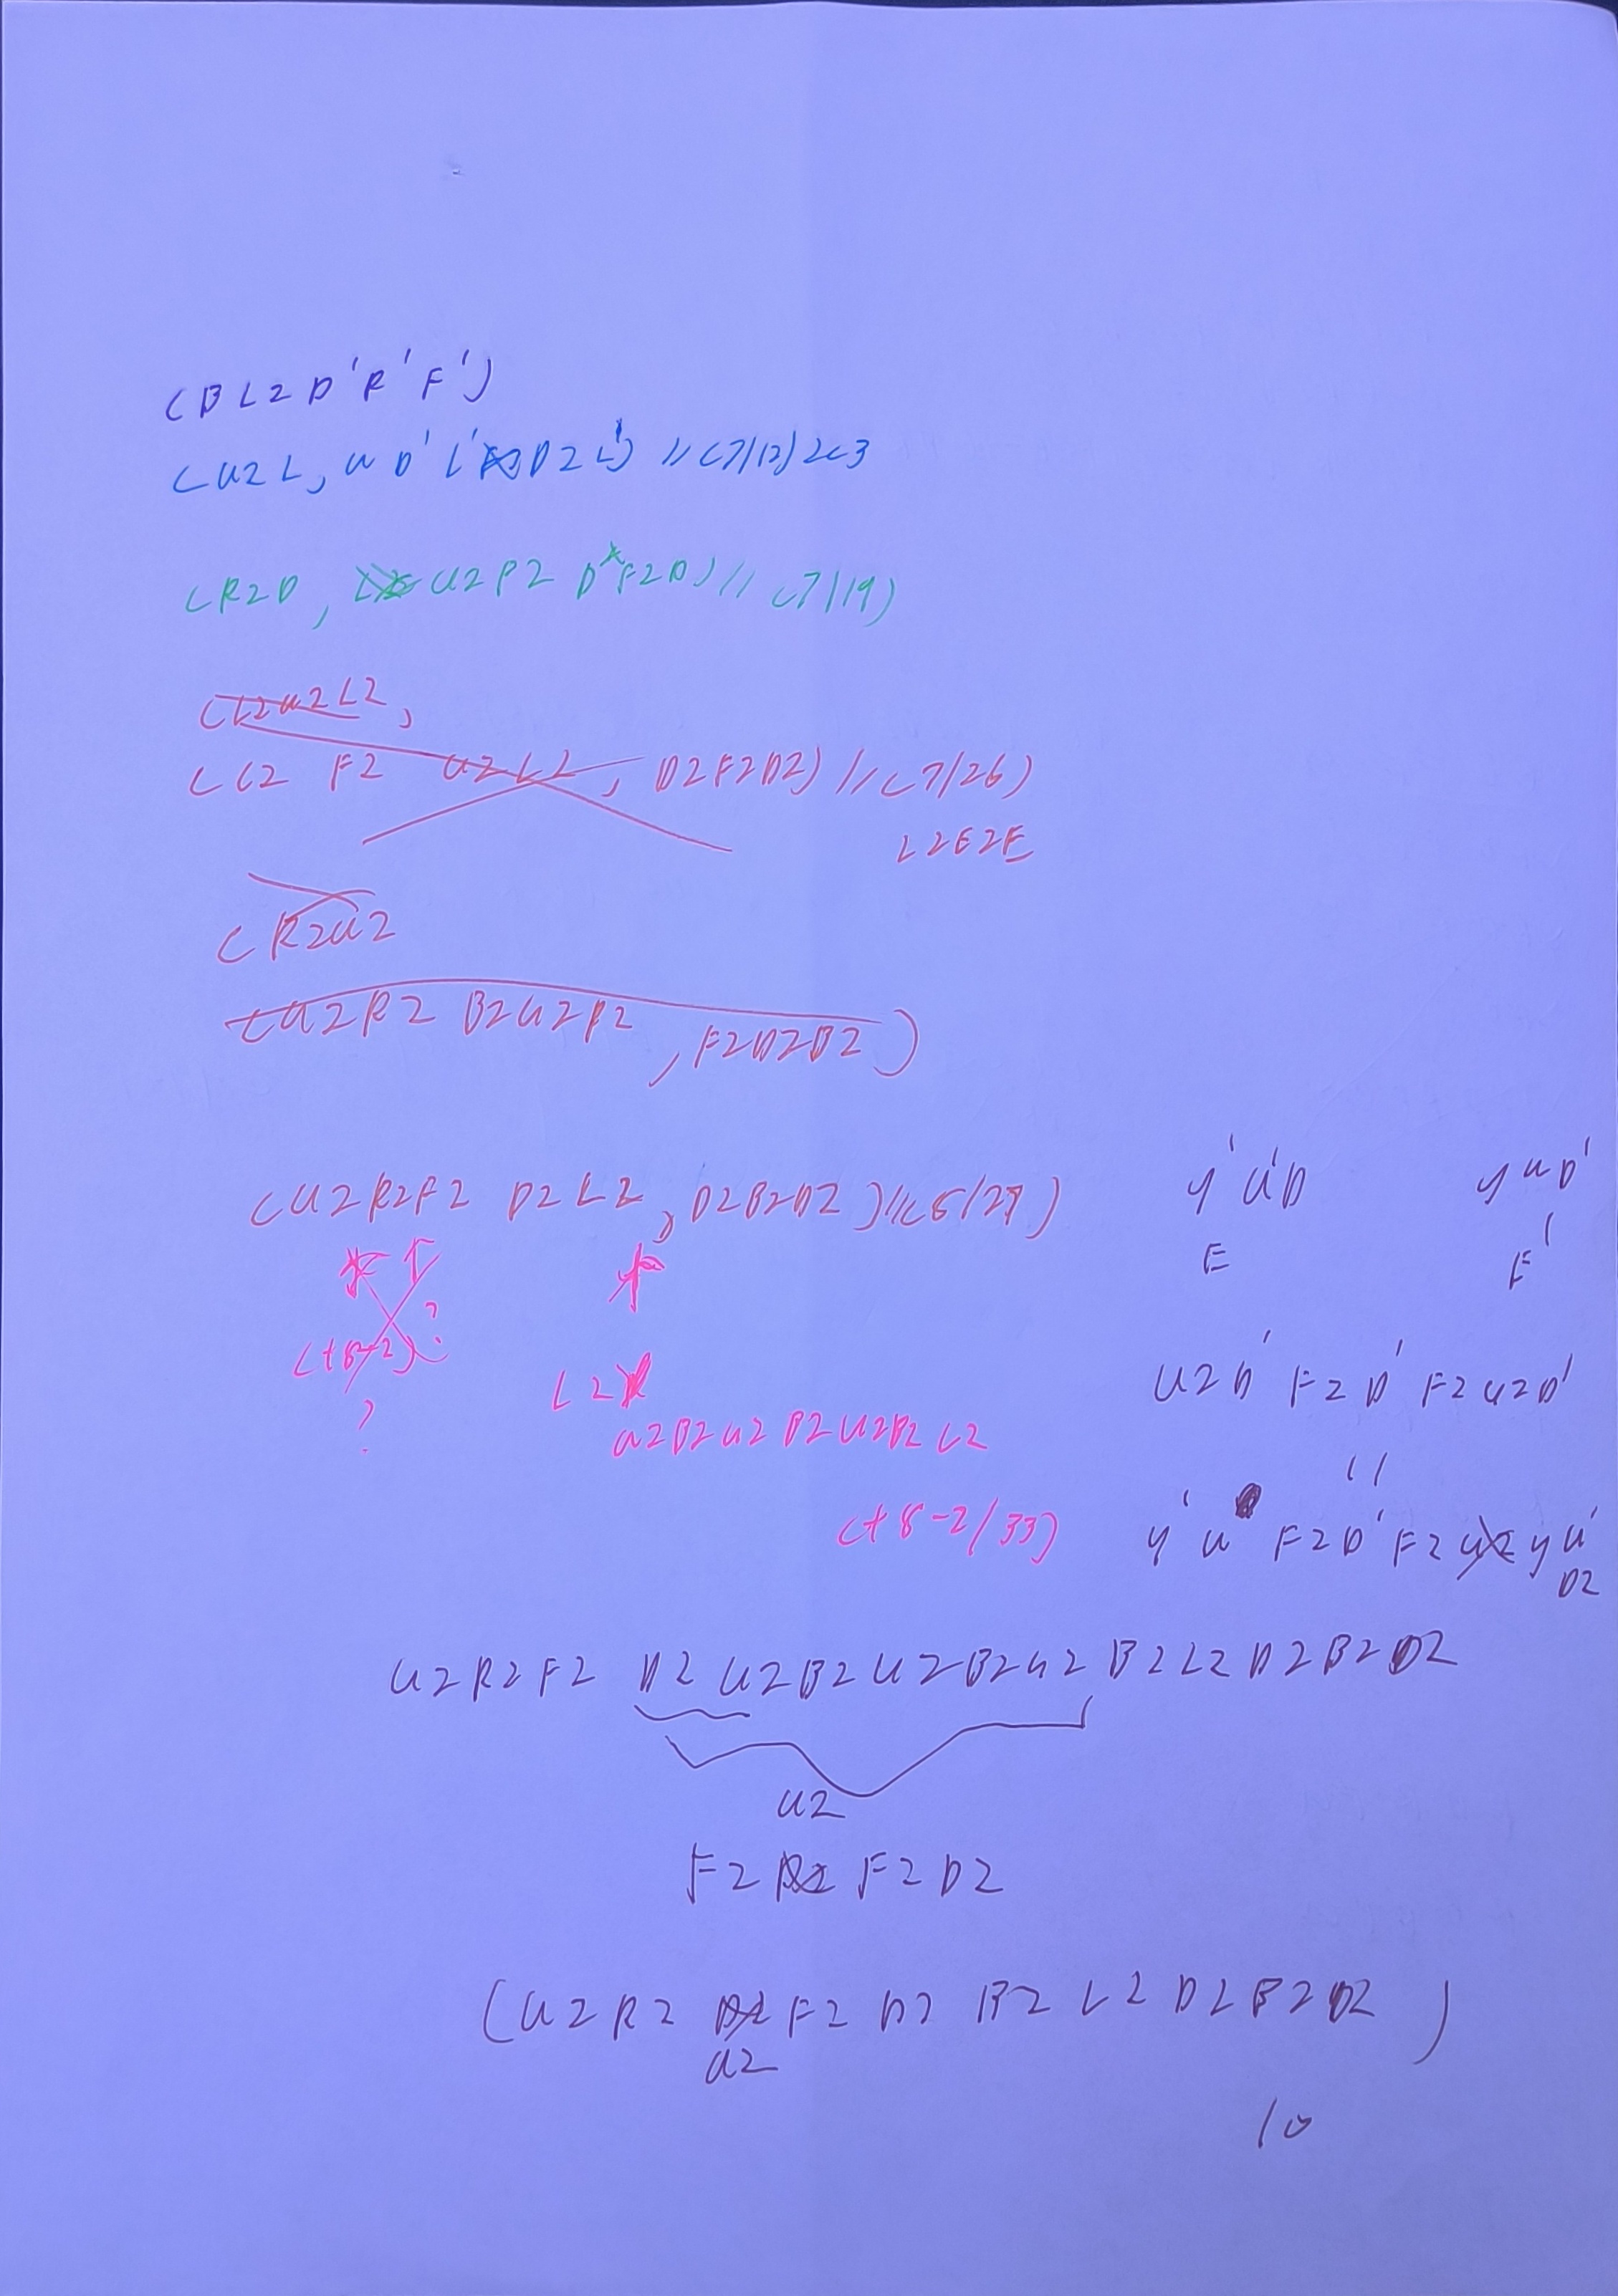 (B L2 D' R' F')
(U2 L, U D' L' D2 L') // (7/12) 2c3
(R2 D, U2 F2 D F2 D) // (7/19)
(L2 U2 L2,
(L2 F2 U2 L2, D2 F2 D2) // (7/26)
L2E2E
(R2U2
(U2R2 B2U2R2, F2D2B2)
(U2R2F2 D2 L2, D2B2D2) // (8/27) y'U'D yUD'
E E'
(+8-2)?
?
L2
U2B2U2 B2U2B2 L2 U2D' F2 D' F2 U2D'
(+8-2/33) y' U F2D' F2 y U'
D2
U2R2F2 D2 U2B2U2B2U2 B2L2 D2B2D2
U2
F2 F2D2
(U2R2 F2 D2 B2 L2 D2B2D2)
U2
10